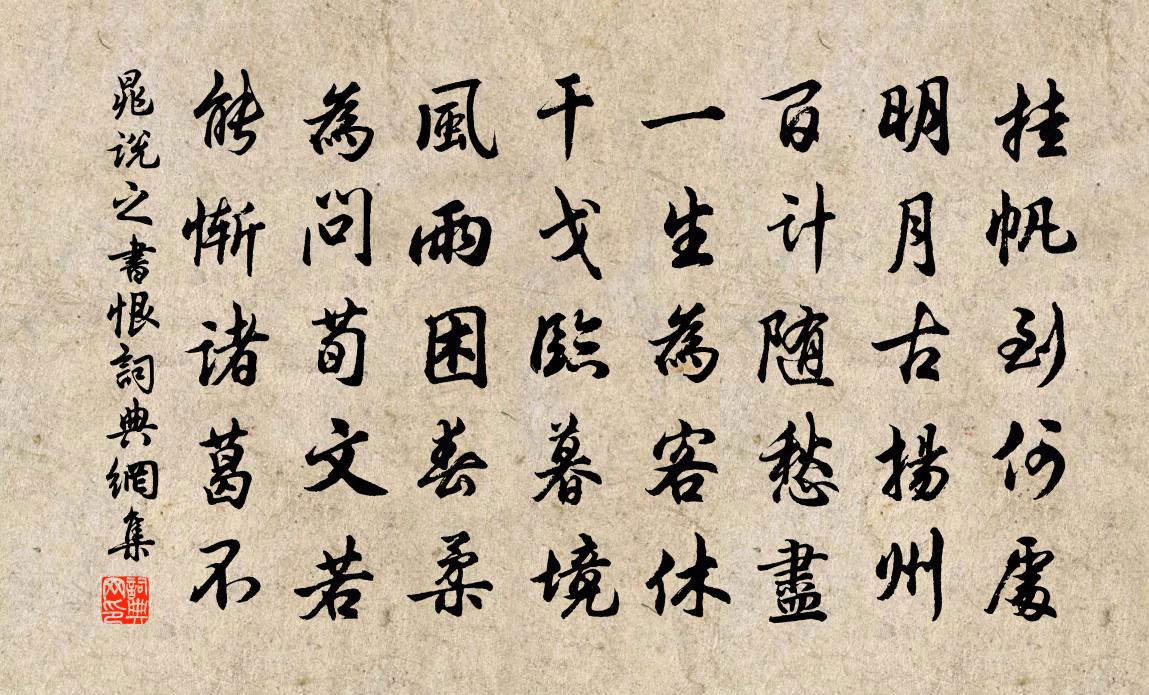 挂帆到何處
明月古揚州
百計随愁盡
一生為客休
干戈臨暮境
風雨困春柔
為問荀文若
能慚諸葛不
晁説之書恨詞典網集
詞典網印